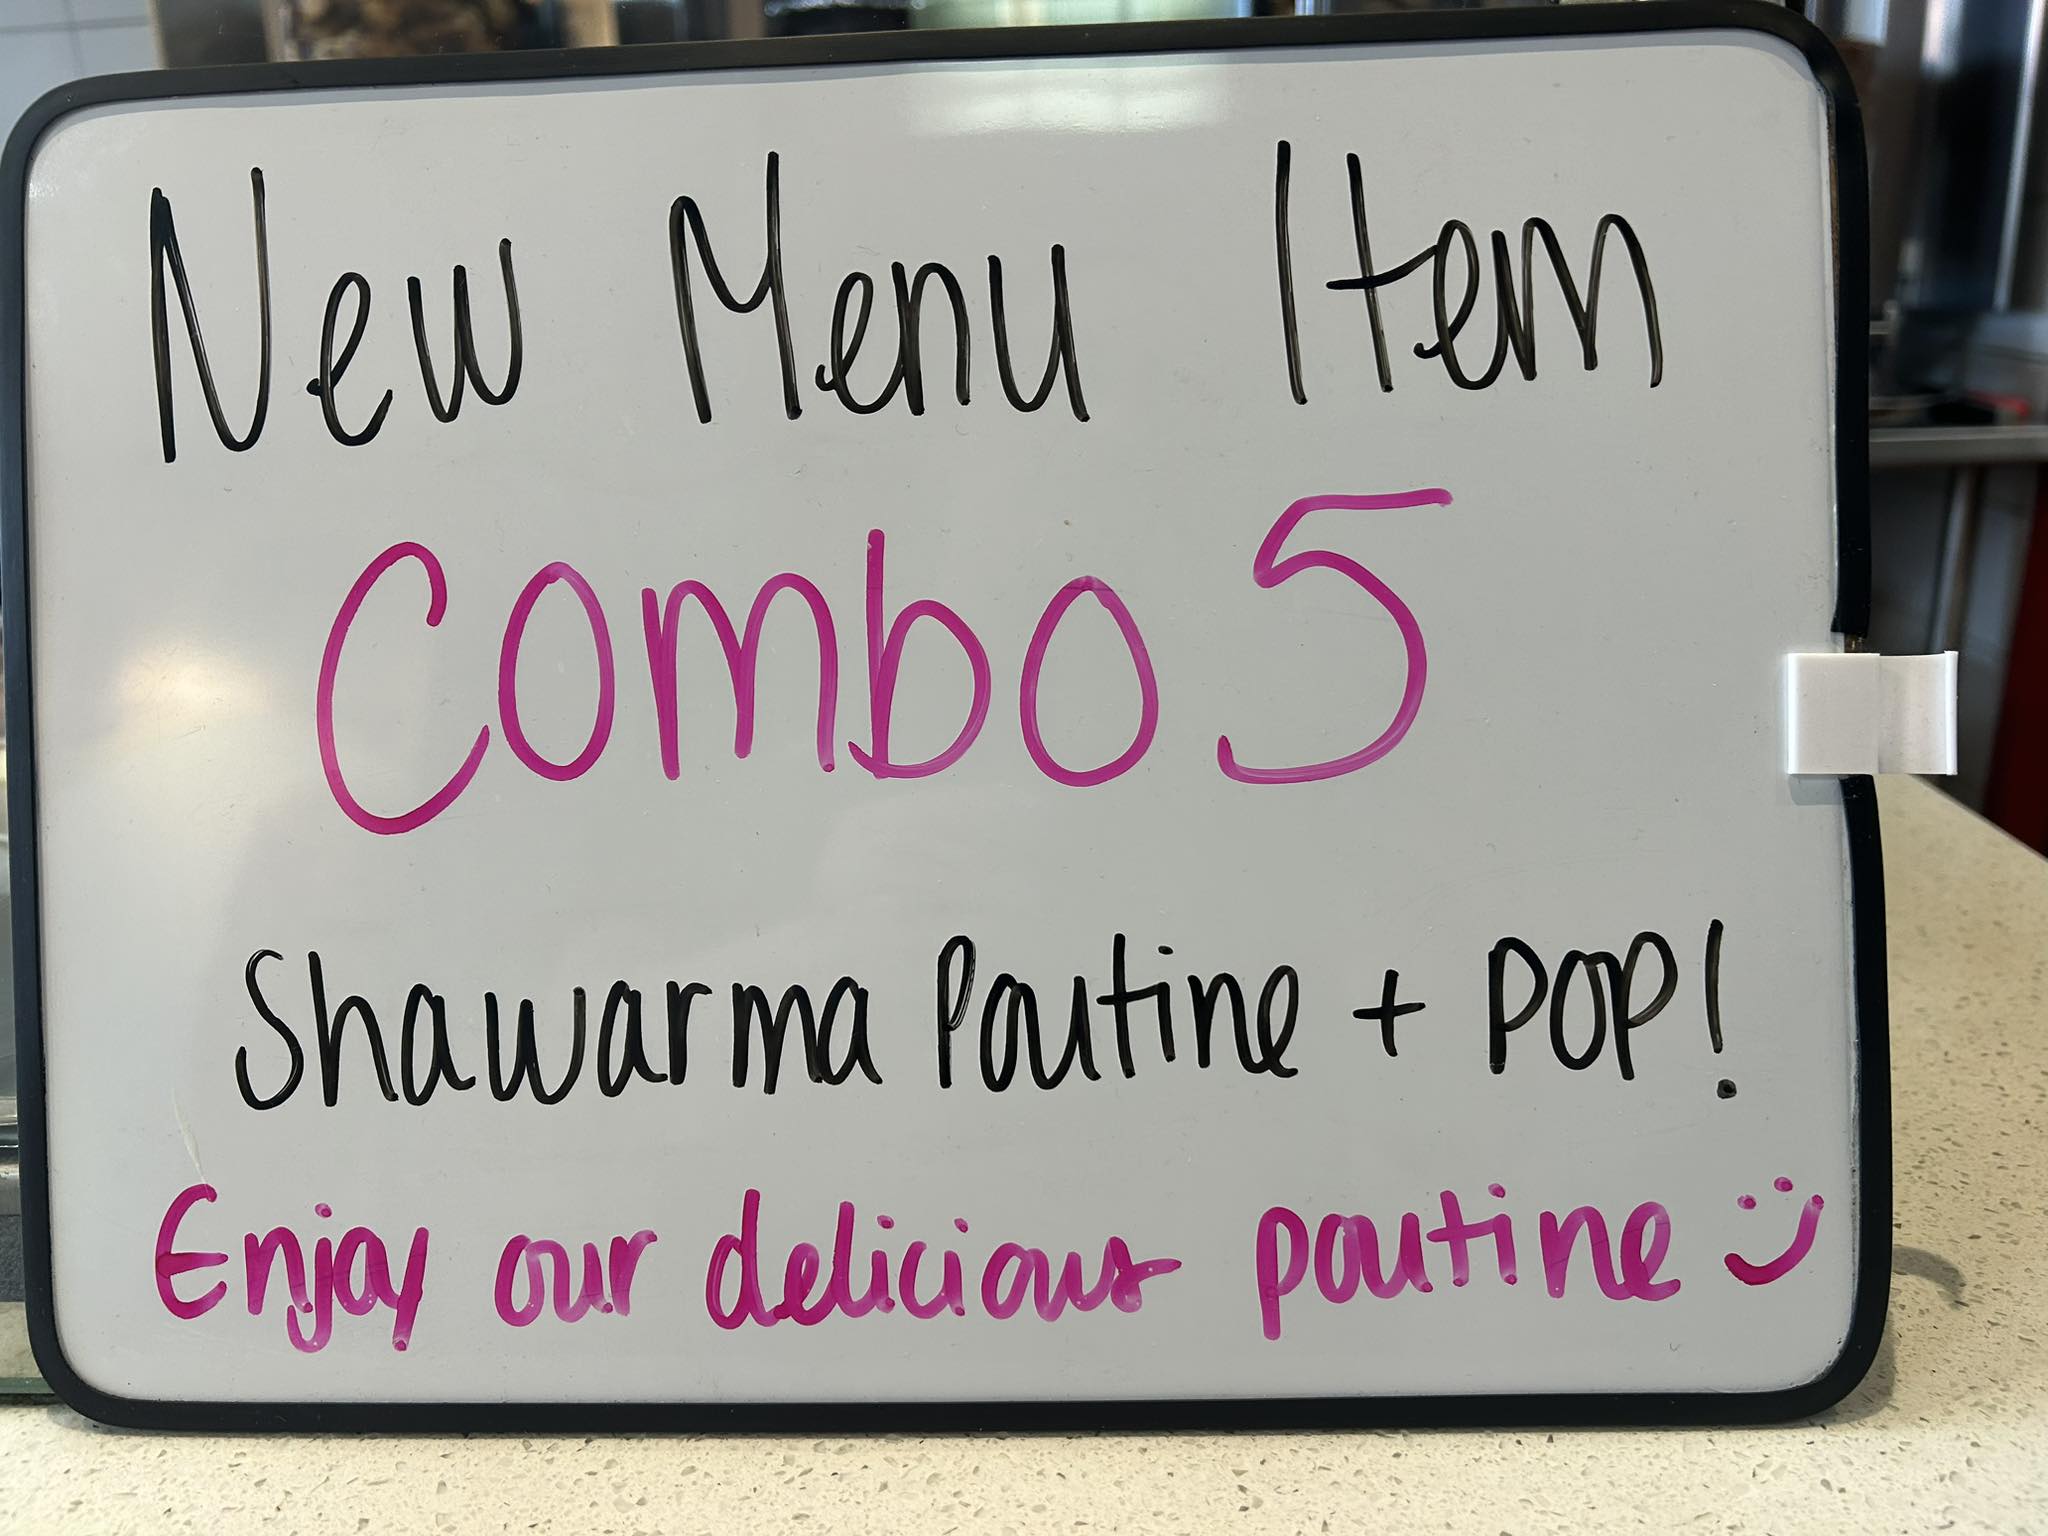 New Menu Item
Combo 5
Shawarma Poutine + POP!
Enjoy our delicious poutine :)